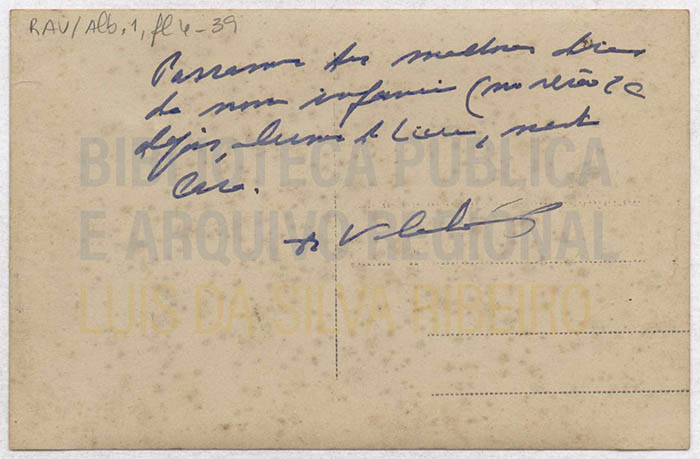 RAV/Alb.1, fl 4-39
Passamos dos melhores dias
da nossa infancia (no verão
depois, alunos do Liceu, nesta
casa.
BIBLIOTECA PÚBLICA
E ARQUIVO REGIONAL
LUIS DA SILVA RIBEIRO